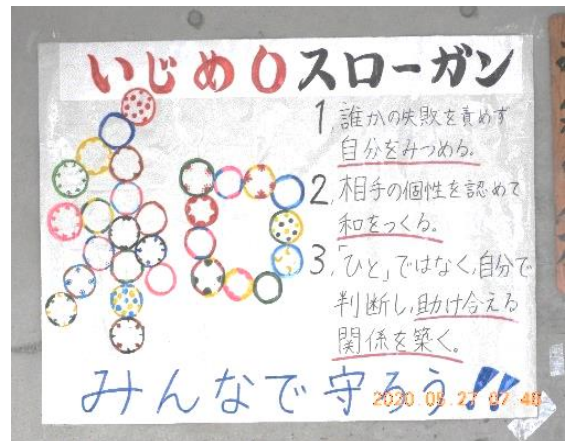 いじめ0スローガン
1, 誰かの失敗を責めず
自分をみつめる。
2, 相手の個性を認めて
和をつくる。
3, 「ひと」ではなく、自分で
判断し、助け合える
関係を築く。
みんなで守ろう!!
2020.05.27 07:40